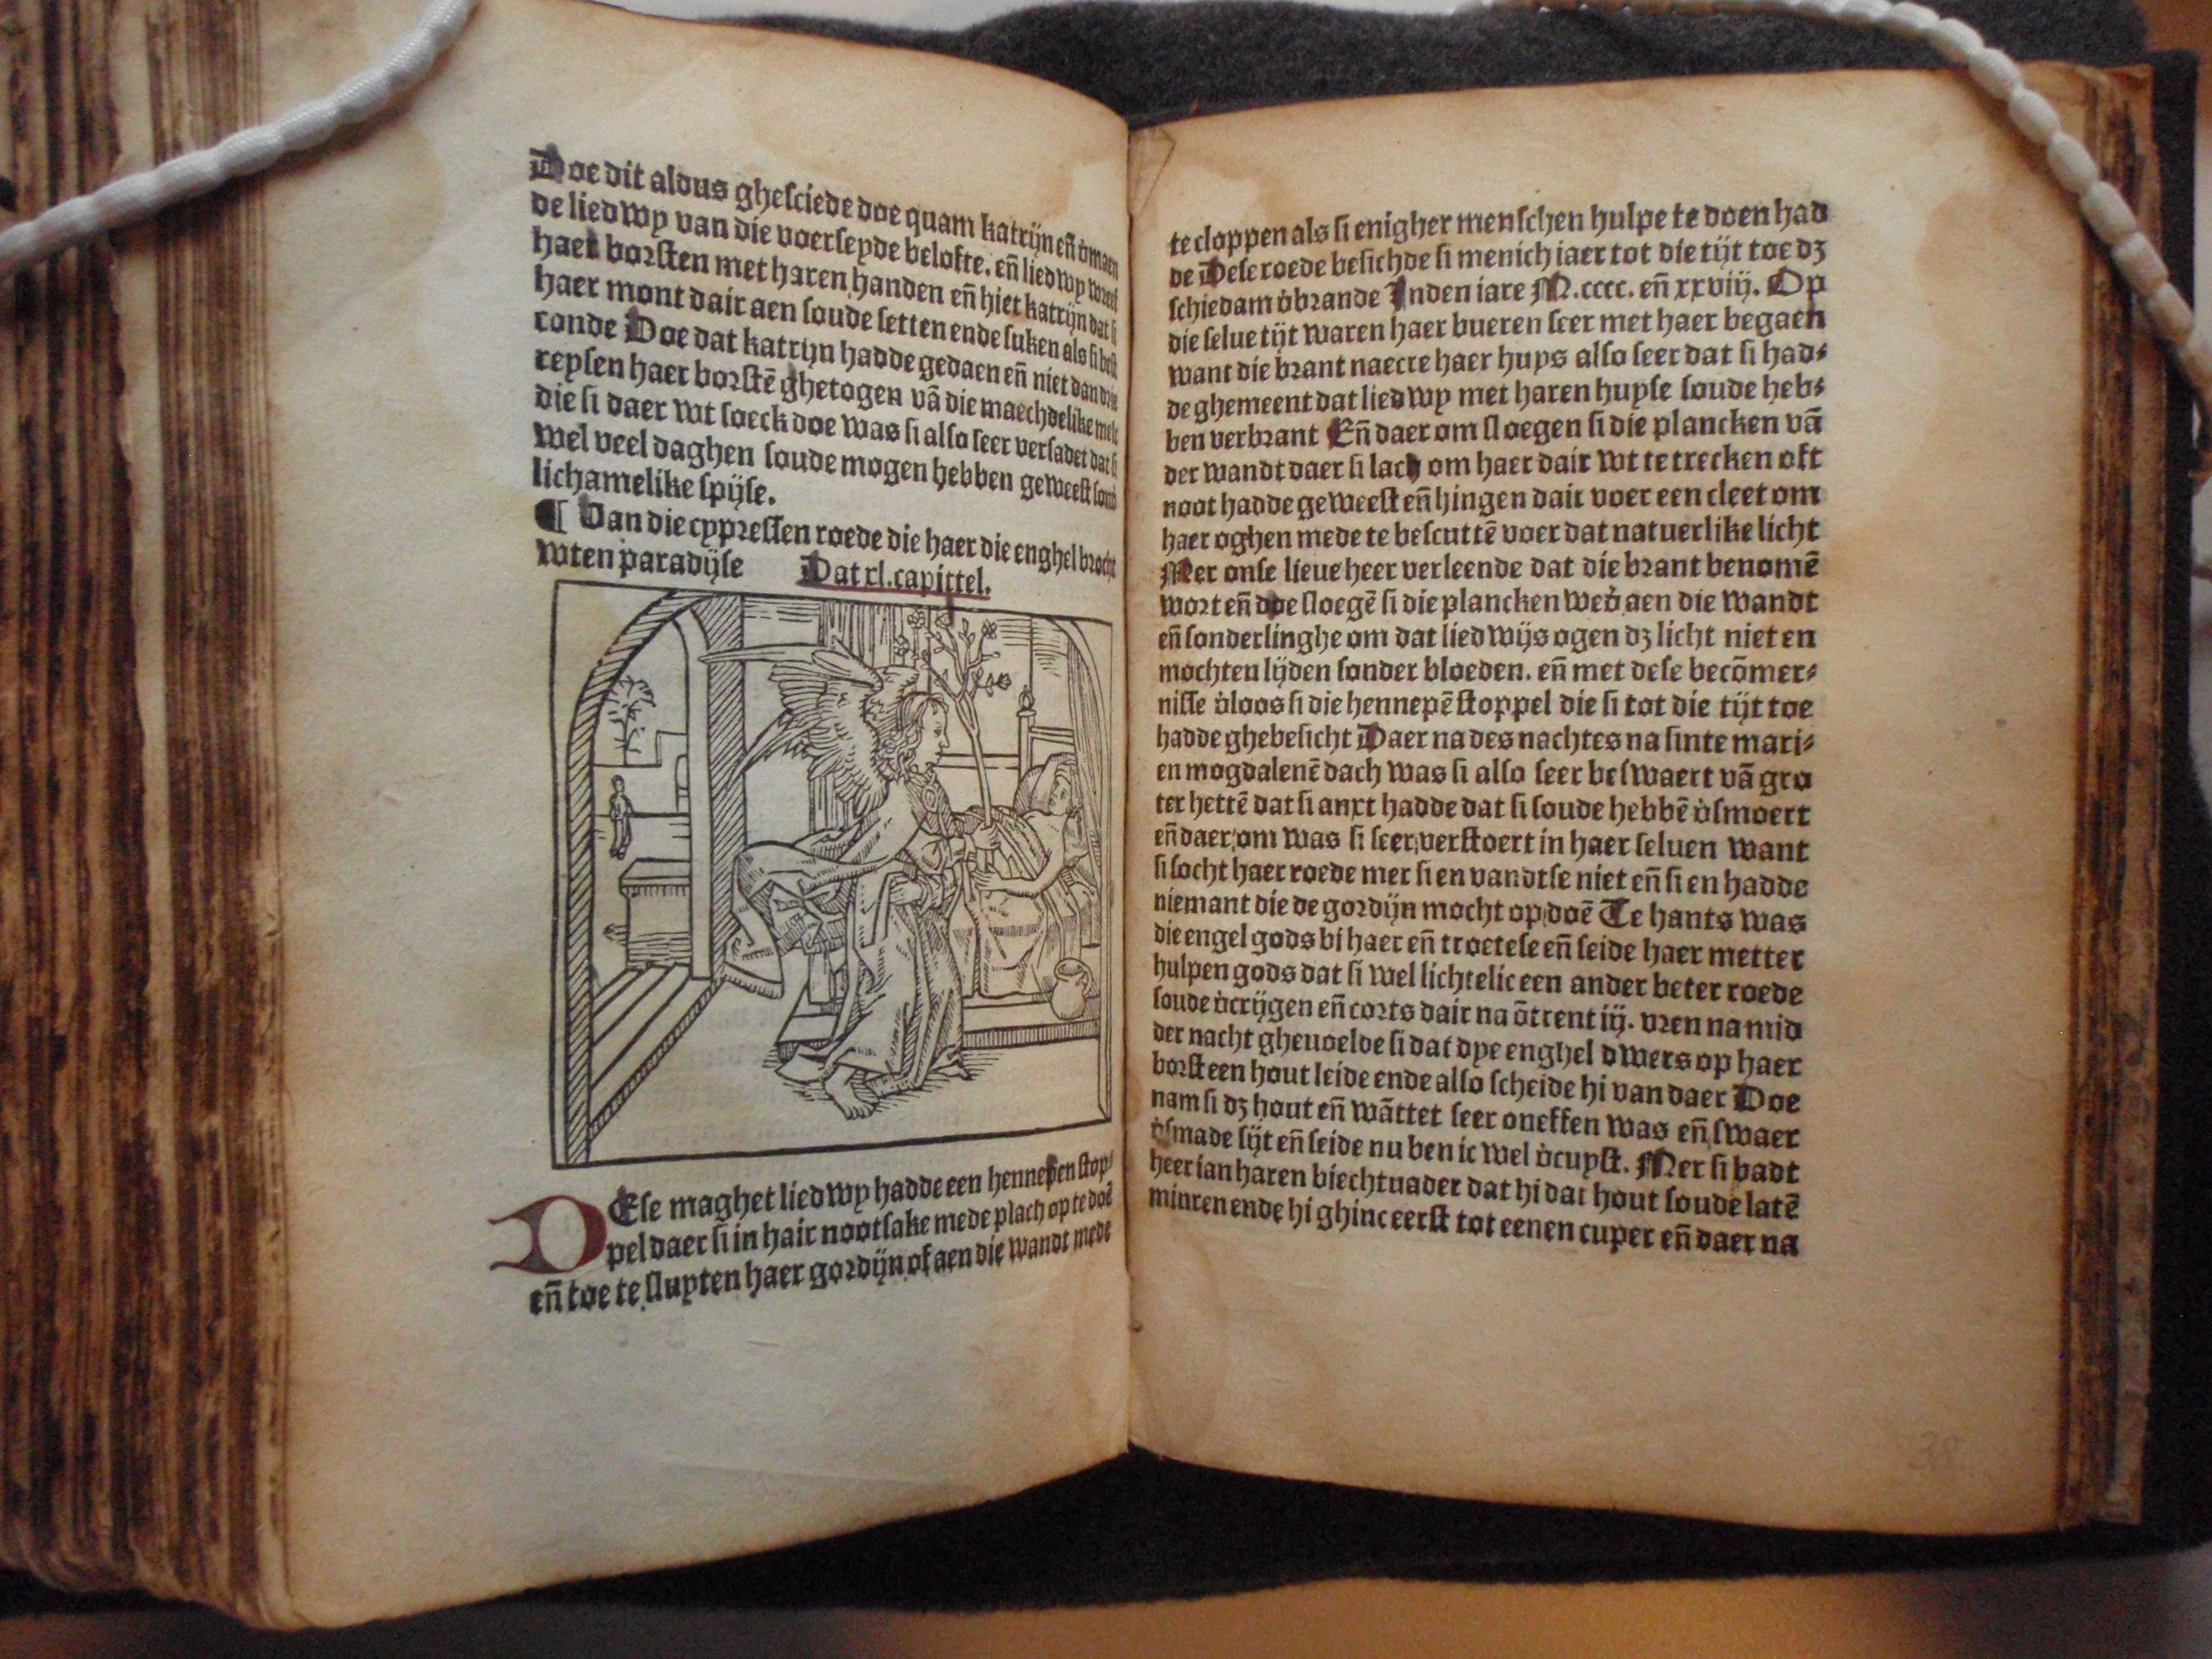 Doe dit aldus gheſciede doe quam katrijn en̄ v̇maen
de liedwy van die voerſeyde belofte. en̄ liedwy wreef
haer borſten met haren handen en̄ hiet katrijn dat ſi
haer mont dair aen ſoude ſetten ende ſuken als ſi beſt
conde Doe dat katrijn hadde gedaen en̄ niet dan drie
reyſen haer borſtē ghetogen vā die maechdelike melc
die ſi daer wt ſoeck doe was ſi alſo ſeer verſadet dat ſi
wel veel daghen ſoude mogen hebben geweeſt
lichamelike ſpijſe.
¶ Van die cypreſſen roede die haer die enghel brocht
wten paradijſe Dat xl. capittel.
DEſe maghet liedwy hadde een hennepen ſtop⸗
pel daer ſi in hair nootſake mede plach op te doē
en̄ toe te ſluyten haer gordijn of aen die wandt mede
te cloppen als ſi enigher menſchen hulpe te doen had
de Deſe roede beſichde ſi menich iaer tot die tijt toe dꝫ
ſchiedam v̇brande Inden iare M.cccc. en̄ xxviij. Op
die ſelue tijt waren haer bueren ſeer met haer begaen
want die brant naecte haer huys alſo ſeer dat ſi had⸗
de ghemeent dat liedwy met haren huyſe ſoude heb⸗
ben verbrant En̄ daer om ſloegen ſi die plancken vā
der wandt daer ſi lach om haer dair wt te trecken oft
noot hadde geweeſt en̄ hingen dair voer een cleet om
haer oghen mede te beſcuttē voer dat natuerlike licht
Mer onſe lieue heer verleende dat die brant benomē
wort en̄ doe ſloegē ſi die plancken wed̓ aen die wandt
en̄ ſonderlinghe om dat liedwijs ogen dꝫ licht niet en
mochten lijden ſonder bloeden. en̄ met deſe becōmer⸗
niſſe v̇loos ſi die hennepē ſtoppel die ſi tot die tijt toe
hadde ghebeſicht Daer na des nachtes na ſinte mari⸗
en mogdalenē dach was ſi alſo ſeer beſwaert vā gro
ter hettē dat ſi anxt hadde dat ſi ſoude hebbē v̇ſmoert
en̄ daer om was ſi ſeer verſtoert in haer ſeluen want
ſi ſocht haer roede mer ſi en vandtſe niet en̄ ſi en hadde
niemant die de gordijn mocht op doē Te hants was
die engel gods bi haer en̄ troeteſe en̄ ſeide haer metter
hulpen gods dat ſi wel lichtelic een ander beter roede
ſoude v̇crijgen en̄ corts dair na ōtrent iij. vren na mid
der nacht gheuoelde ſi dat dye enghel dwers op haer
borſt een hout leide ende alſo ſcheide hi van daer Doe
nam ſi dꝫ hout en̄ wāttet ſeer oneffen was en̄ ſwaer
v̇ſmade ſijt en̄ ſeide nu ben ic wel v̇cuyſt. Mer ſi badt
heer ian haren biechtuader dat hi dat hout ſoude latē
minren ende hi ghinc eerſt tot eenen cuper en̄ daer na
38